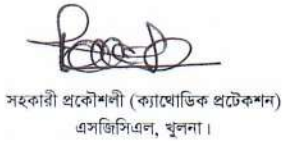 সহকারী প্রকৌশলী (ক্যাথোডিক প্রটেকশন)
এসজিসিএল, খুলনা।